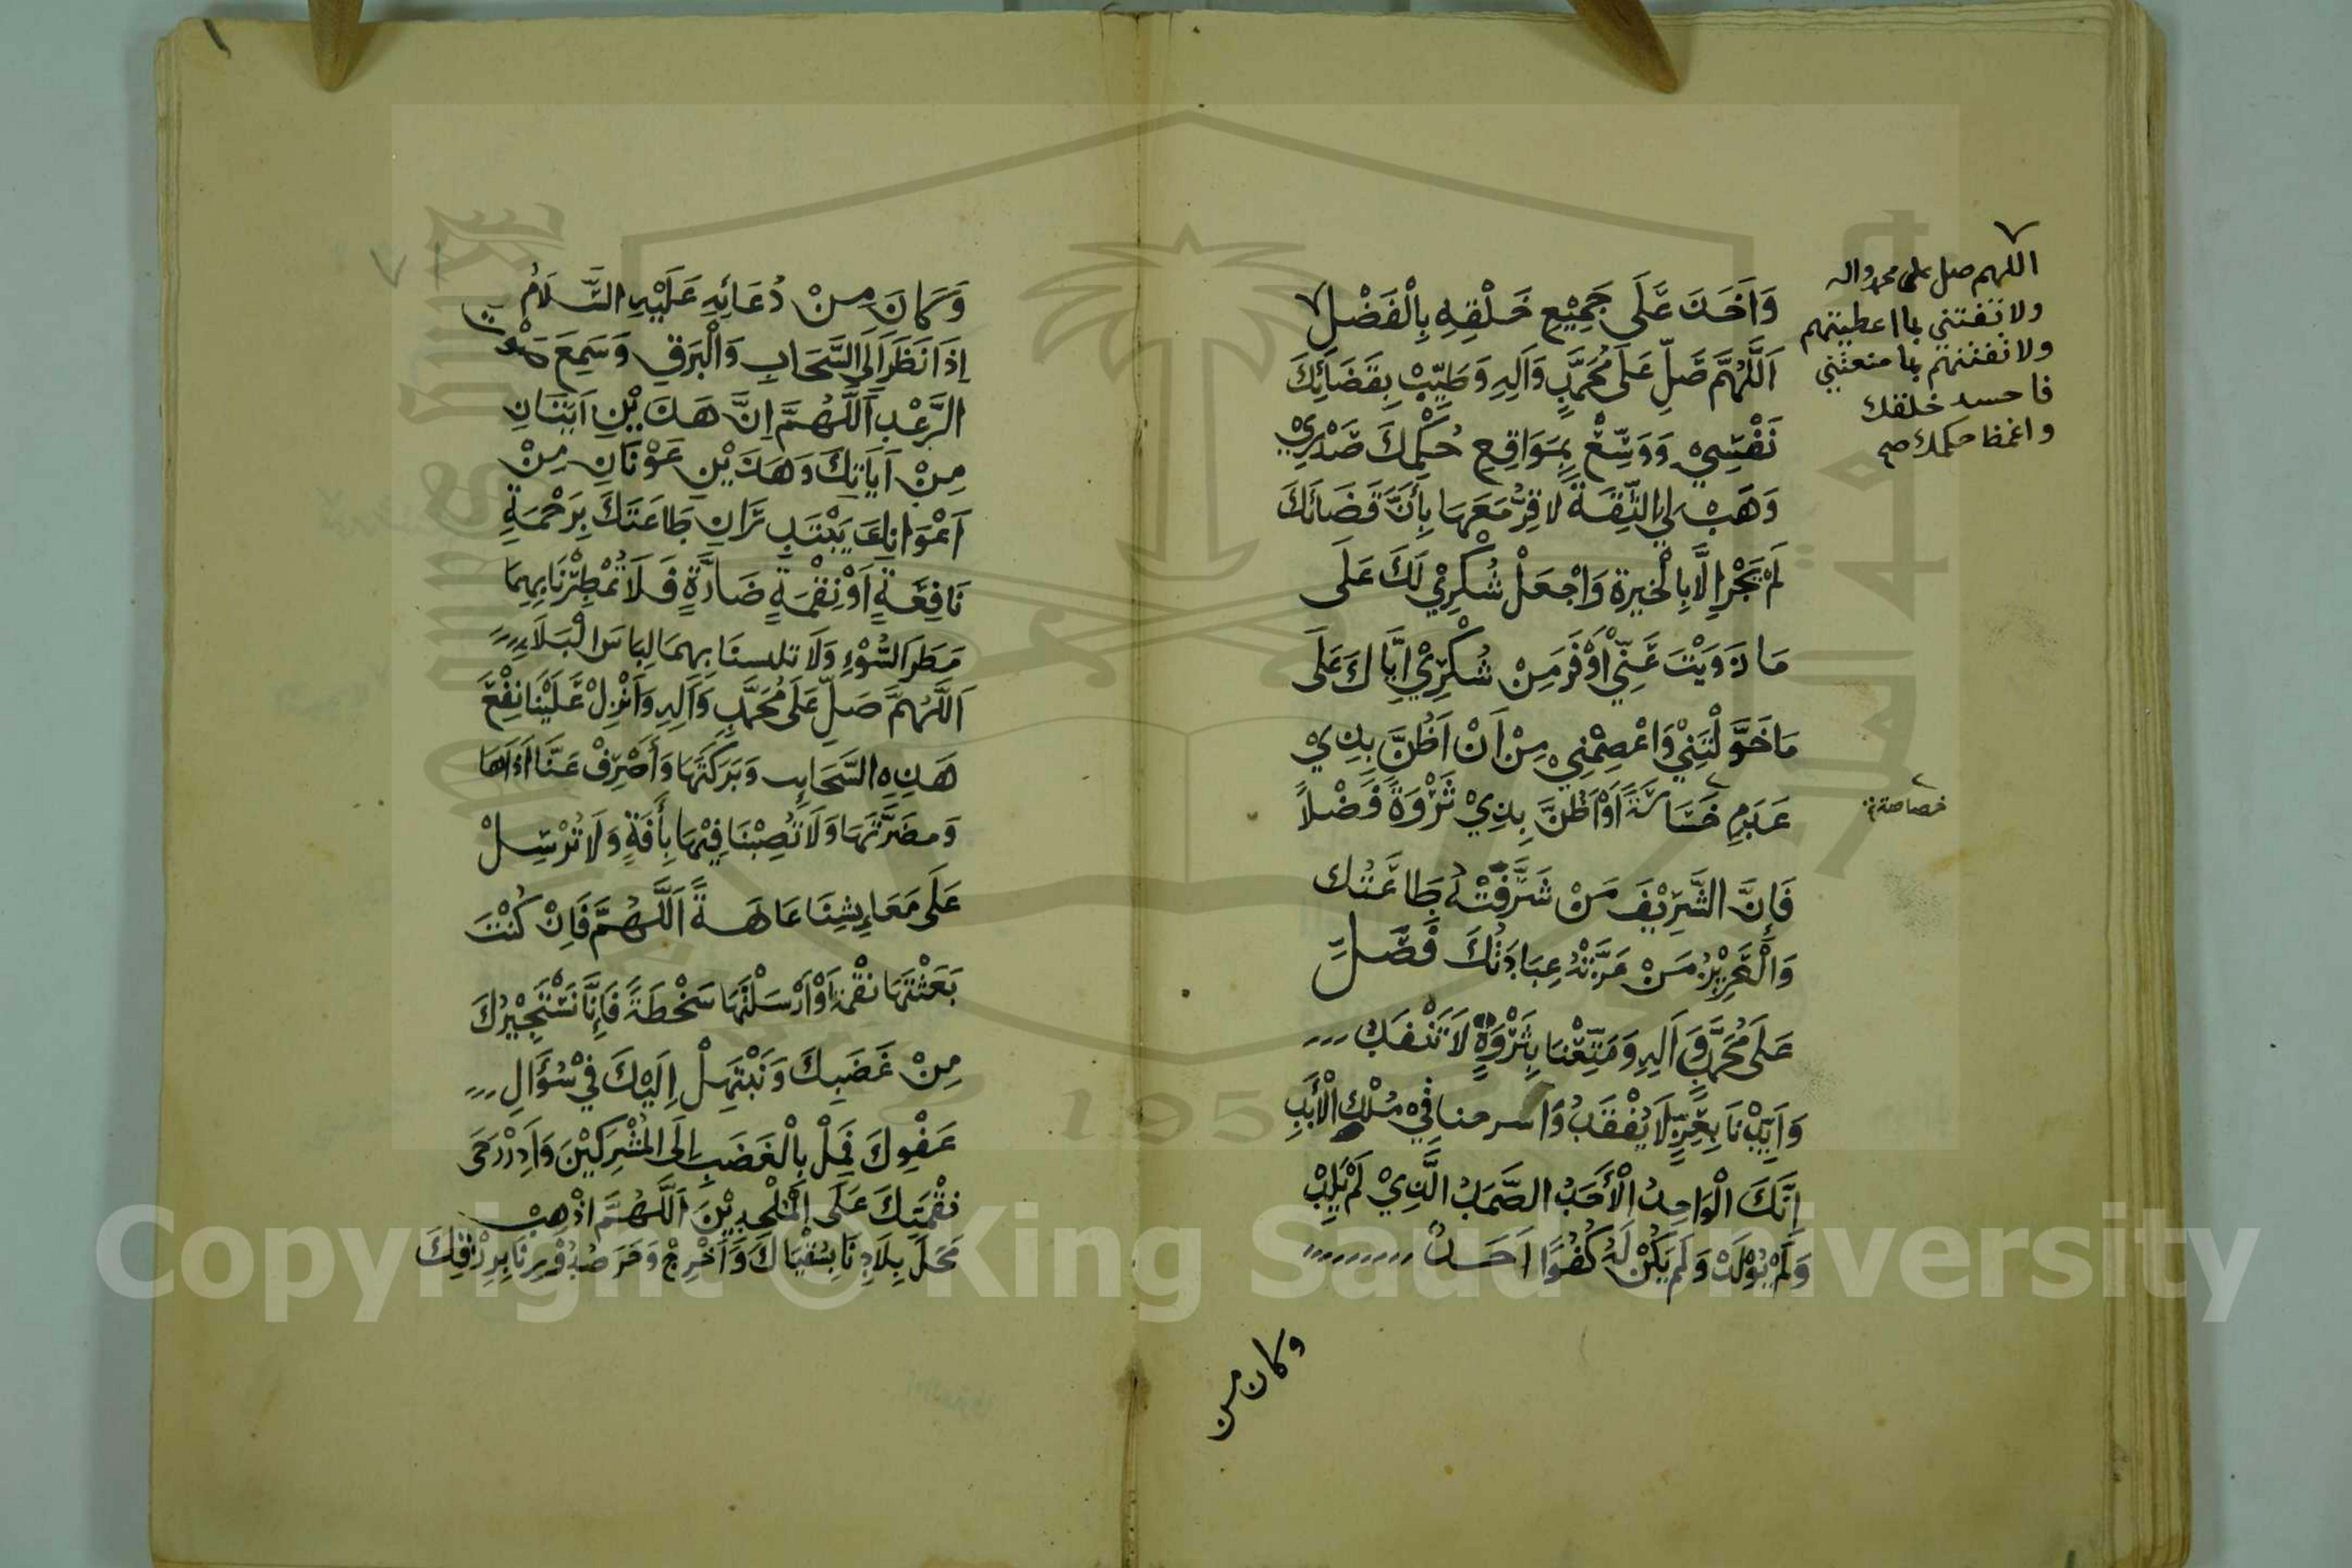 وَاَخَذَ عَلَى جَمِيْعِ خَلْقِهِ بِالْفَضْلِ
اَللَّهُمَّ صَلِّ عَلَى مُحَمَّدٍ وَآلِهِ وَطَيِّبْ بِقَضَائِكَ
نَفْسِيْ وَوَسِّعْ بِمَوَاقِعِ حُكْمِكَ صَدْرِيْ
وَهَبْ لِي الثِّقَةَ لِاُقِرَّ مَعَهَا بِأَنَّ قَضَائَكَ
لَمْ يَجْرِ إِلَّا بِالْخِيَرةِ وَاجْعَلْ شُكْرِيْ لَكَ عَلَى
مَا زَوَيْتَ عَنِّيْ اَوْفَرَ مِنْ شُكْرِيْ اِيَّاكَ عَلَى
مَا خَوَّلْتَنِيْ وَاعْصِمْنِيْ مِنْ اَنْ اَظُنَّ بِذِيْ
عَدَمٍ خَسَاسَةً اَوْ اَظُنَّ بِذِيْ ثَرْوَةً فَضْلاً
فَإِنَّ الشَّرِيْفَ مَنْ شَرَّفَتْهُ طَاعَتُك
وَالْعَزِيْزُ مَنْ عَزَّتْهُ عِبَادَتُكَ فَصَلِّ
عَلَى مُحَمَّدٍ وَآلِهِ وَمَتِّعْنَا بِثَرْوَةٍ لَا تَنْفَدُ
وَاَيِّدْنَا بِعِزٍّ لَا يُفْقَدُ وَاسرحنا فِيْ مُلْكِ الْأَبَدِ
اِنَّكَ الْوَاحِدُ الْأَحَدُ الصَّمَدُ الَّذِيْ لَمْ يَلِدْ
وَلَمْ يُوْلَدْ وَلَمْ يَكُنْ لَهُ كُفُوًا اَحَدٌ
وكان من
اللهم صل على محمد واله
ولا تفتني بما اعطيتهم
ولا تفتنهم بما منعتني
فاحسد خلقك
واغمط حكمك صح
خصاصة
وَكَانَ مِنْ دُعَائِهِ عَلَيْهِ السَّلَامُ
اِذَا نَظَرَ اِلَى السَّحَابِ وَالْبَرْقِ وَسَمِعَ صَوْت
الرَّعْدِ اَللَّهُمَّ اِنَّ هَذَيْنِ اَيَتَانِ
مِنْ اَيَاتِكَ وَهَذَيْنِ عَوْنَانِ مِنْ
اَعْوَانِكَ يَبْتَدِرَانِ طَاعَتَكَ بِرَحْمَةٍ
نَافِعَةٍ اَوْ نِقْمَةٍ ضَارَّةٍ فَلَا تُمْطِرْنَا بِهِمَا
مَطَرَ السَّوْءِ وَلَا تلبسنَا بِهِمَا لِبَاسَ الْبَلَاءِ
اَللَّهُمَّ صَلِّ عَلَى مُحَمَّدٍ وَآلِهِ وَاَنْزِلْ عَلَيْنَا نَفْعَ
هَذِهِ السَّحَابِ وَبَرَكَتَهَا وَاَصْرِفْ عَنَّا اَذَاهَا
وَمضَرَّتَهَا وَلَا تُصِبْنَا فِيْهَا بِأَفَةٍ وَلَا تُرْسِلْ
عَلَى مَعَايِشِنَا عَاهَةً اَللَّهُمَّ فَاِنْ كُنْتَ
بَعَثْتَهَا نقْمَة اَوْ اَرْسَلْتَهَا سَخْطَةً فَاِنَّا نَسْتَجِيْرُكَ
مِنْ غَضَبِكَ وَنَبْتَهِلْ اِلَيْكَ فِيْ سُؤَالِ
عَفْوِكَ فَمِلْ بِالْغَضَبِ اِلَى الْمُشْرِكَيْنَ وَاَدِرْ رَحَى
نقْمَتِكَ عَلَى الْمُلْحِدِيْنَ اَللَّهُمَّ اذْهِبْ
مَحَلَ بِلَادِنَا بِسُقْيَاكَ وَاَخْرِجْ وَحَرَ صُدُوْرِنَا بِرِزْقِكَ
Copyright © King Saud University